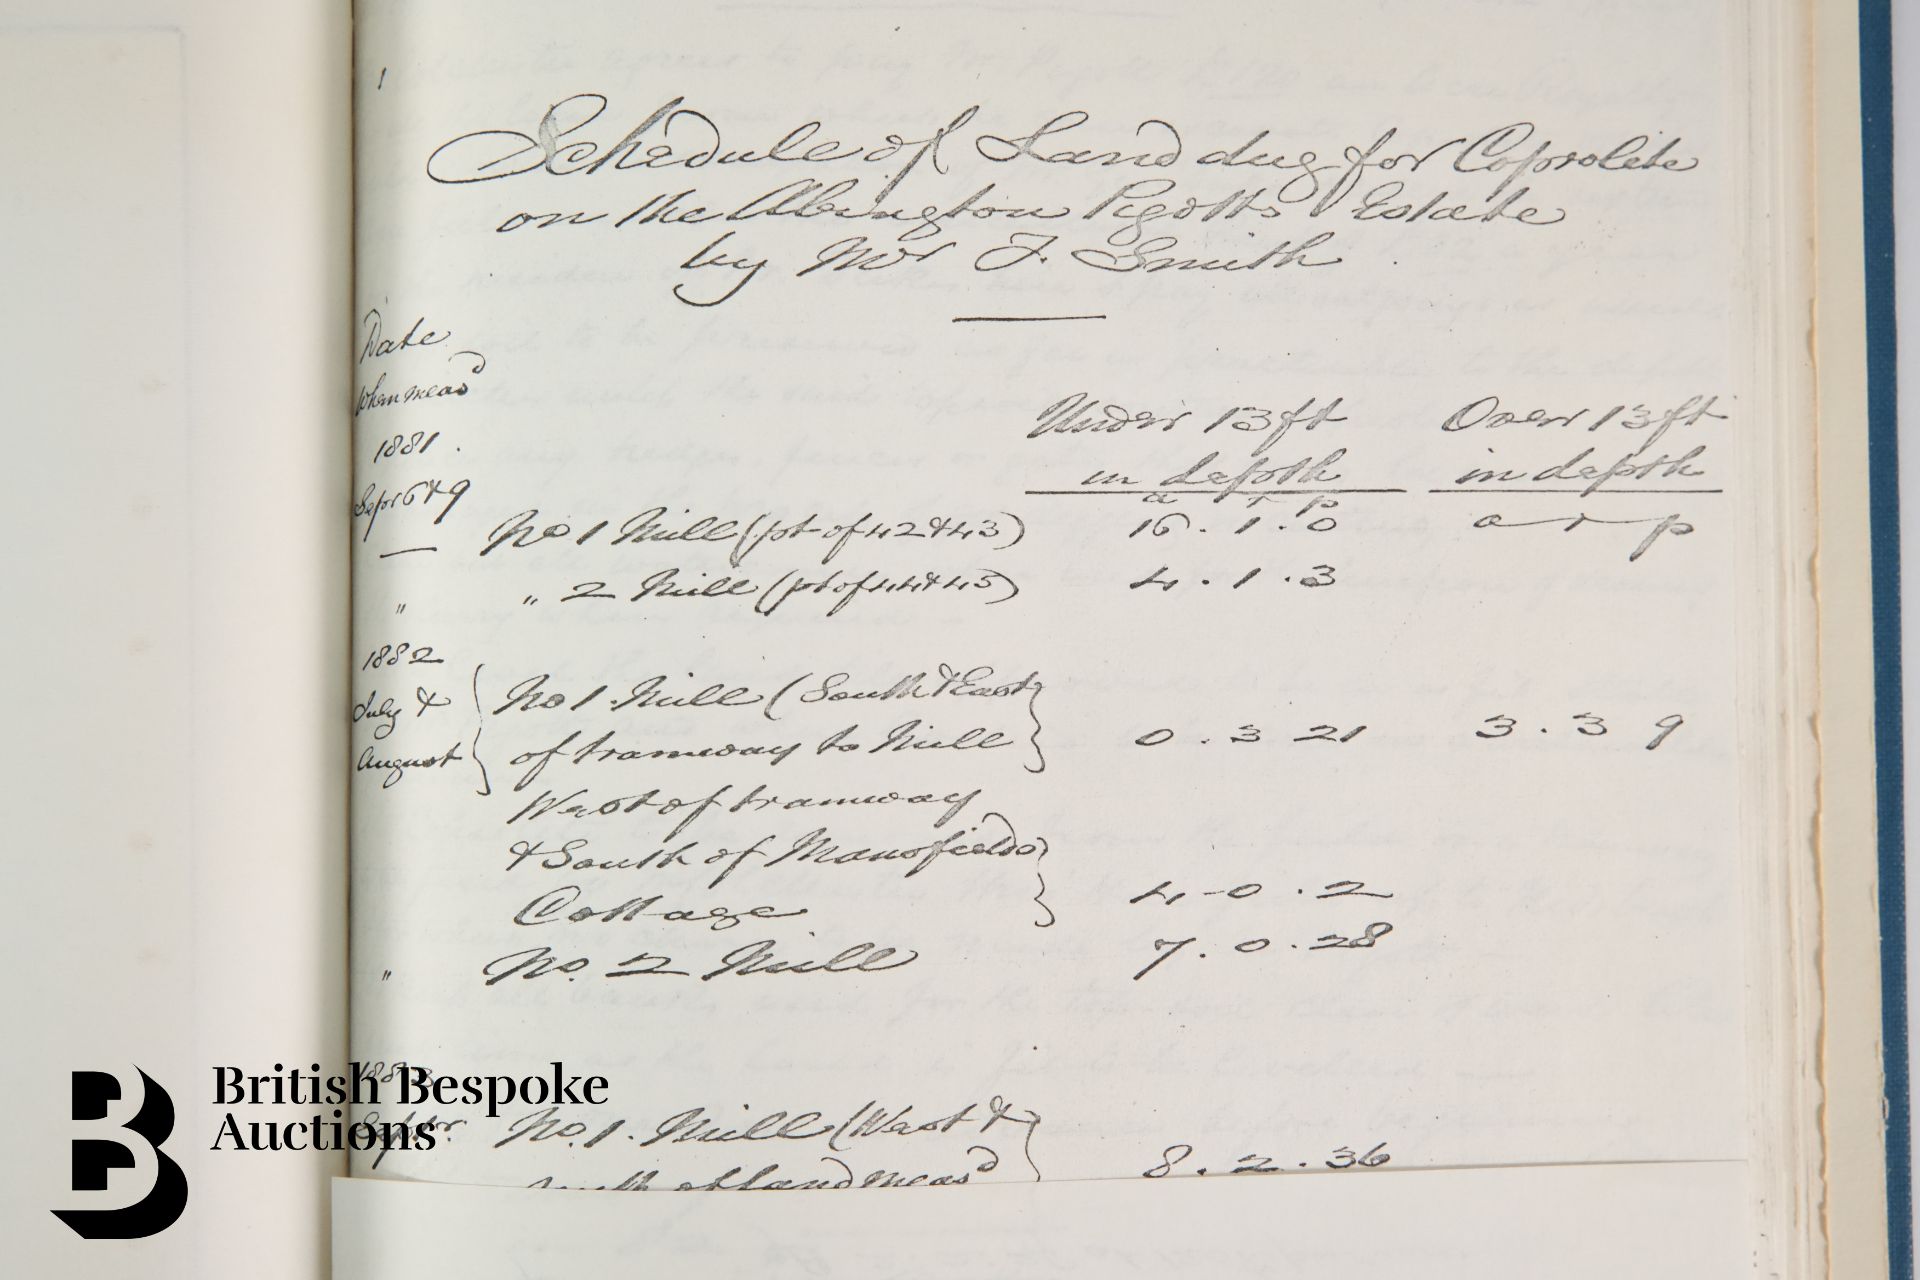 1
Schedule of Land dug for Coprolite
on the Abington Pigotts Estate
by Mr F. Smith
Date
When meas^d
1881.
Under 13 ft Over 13 ft
in depth in depth
a r p
Sepr 6 & 9 No 1 Mill (pt of 42 & 43) 16 . 1 . 0 a r p
" " 2 Mill (pt of 44 & 45) 4 . 1 . 3
1882
July & August No 1 Mill (South & East
of tramway to Mill 0 . 3 21 3 . 3 9
West of tramway
& South of Mansfields
Cottage 4 - 0 . 2
" No. 2 Mill 7 . 0 . 28
1883
Septr. No. 1. Mill (West &
of land meas^d 8 . 2 . 36
British Bespoke
Auctions
B